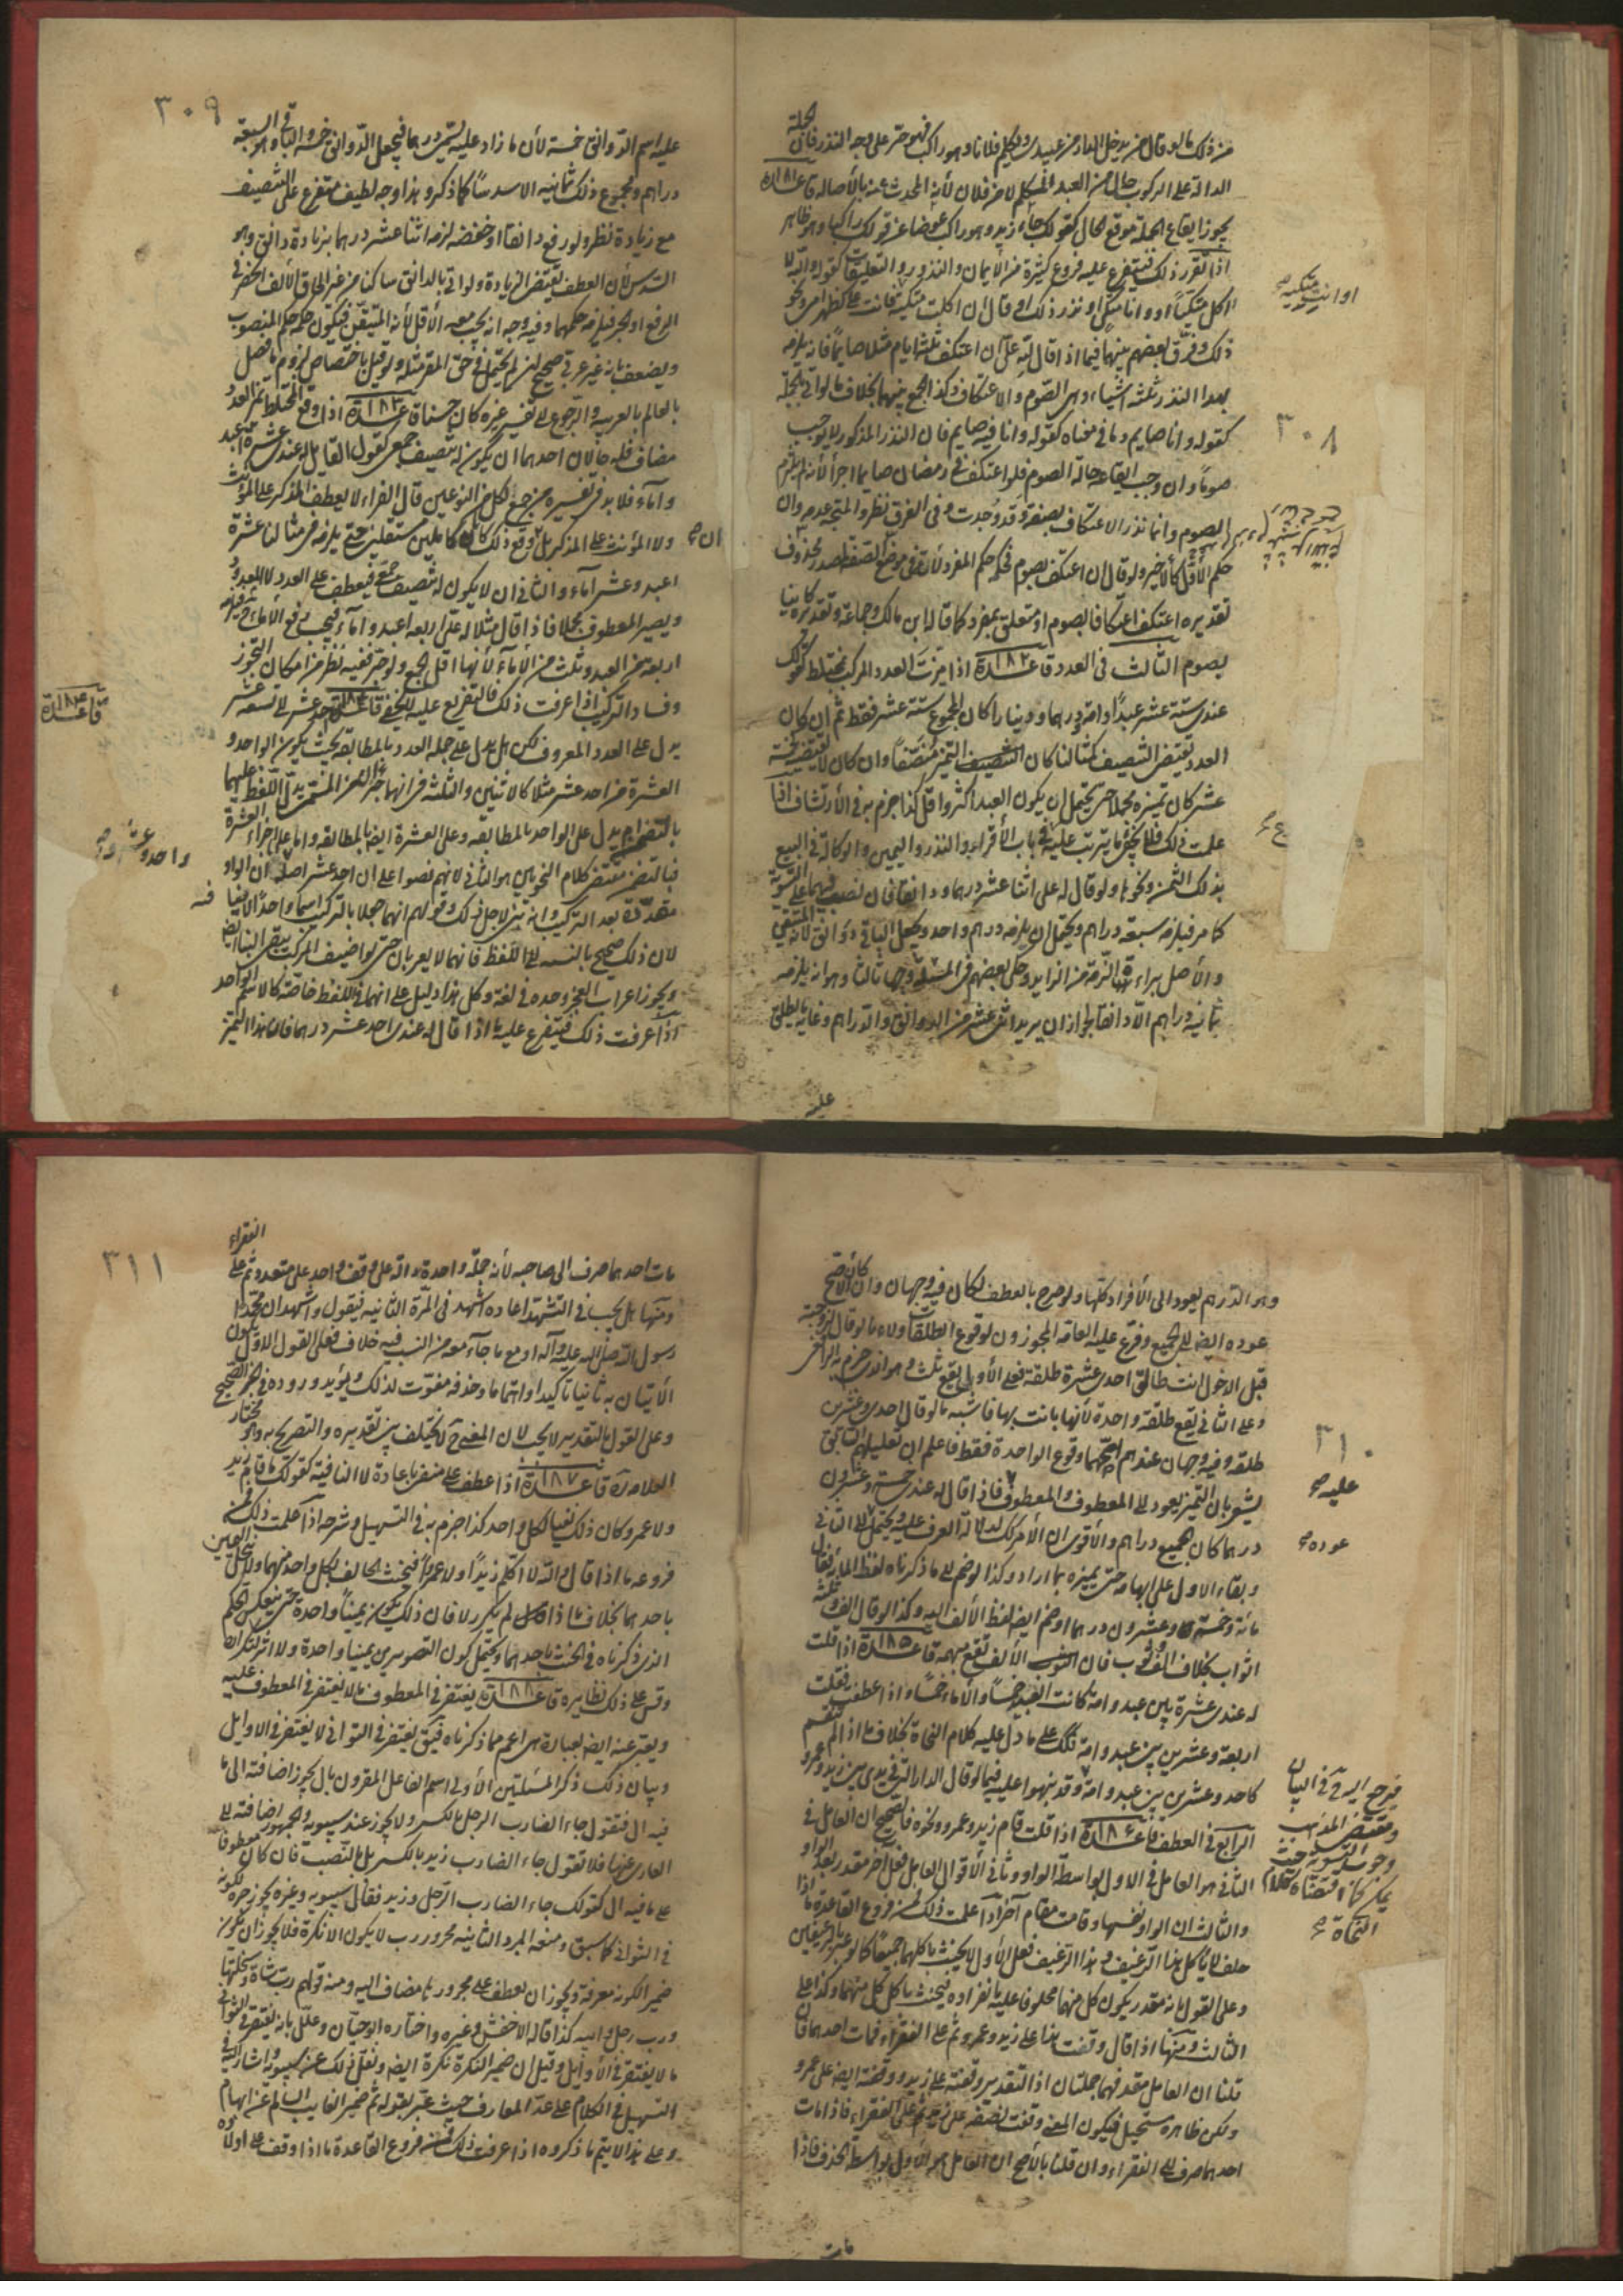 من ذلك ما لو قال من يدخل الدار من عبيدي ويكلم فلانا وهو راكب فهو حر على وجه النذر فان الجملة
الدالة على الركوب حال من العبد المتكلم لا من فلان لأنه المحدث عنه بالأصالة قاعدة ١٨١
يجوز ايقاع الجملة موقع الحال كقولك جاء زيد وهو راكب عوضا عن قولك راكبا وهو ظاهر
اذا تقرر ذلك فيتفرع عليه فروع كثيرة من الأيمان والنذور والتعليقات كقوله والله لا
اكل متكئا او وانا متكئ او نذر ذلك او قال ان اكلت متكئة فانت على كظهر امي ونحو
او انت متكئة صح
ذلك وفرق بعضهم بينهما فيما اذا قال لله علي ان اعتكف ثلثة ايام مثلا صايما فانه يلزمه
بهذا النذر ثلثة اشياء وهي الصوم والاعتكاف وكذا الجمع بينهما بخلاف ما لو اتى بالجملة
كقوله وانا صايم وما في معناه كقوله وانا فيه صايم فان النذر المذكور لا يوجب
٣٠٨
صوما وان وجب ايقاعه حالة الصوم فلو اعتكف في رمضان صايما اجزأ لأنه لم يلتزم
الصوم وانما نذر الاعتكاف بصفة وقد وجدت وفي الفرق نظر والمتجه عدمه وان
حكم الأول كالأخير ولو قال ان اعتكف بصوم فحكمه حكم المفرد لأنه في موضع الصفة لمصدر محذوف
تقديره اعتكف اعتكافا بصوم او متعلق بمفرد كما قاله ابن مالك وجماعة وتقديره كاينا
بصوم الثالث في العدد قاعدة ١٨٢ اذا ميزت العدد المركب بمختلط كقولك
عندي ستة عشر عبدا وامة او درهما ودينارا كان المجموع ستة عشر فقط ثم ان كان
العدد يقتضي التنصيف كمثالنا كان التمييز منصفا وان كان لا يقتضيه كخمسة
عشر كان تمييزه مجملا حتى يحتمل ان يكون العبد اكثر واقل كذا جزم به في الأرتشاف اذا
علمت ذلك فلا يخفى ما يترتب عليه في باب الأقرار والنذر واليمين والوكالة في البيع
بذلك الثمن ونحوها ولو قال له علي اثنا عشر درهما ودانقا فان نصب فيهما على التسوية
كما مر فيلزمه سبعة دراهم ويحتمل ان يلزمه درهم واحد ويجعل الباقي دوانق لأنه المتيقن
والأصل براءة الذمة من الزايد وحكى بعضهم في المسئلة وجها ثالثا وهو انه يلزمه
ثمانية دراهم الا دانقا لجواز ان يريد اثنى عشر من الدوانق والدراهم وغاية ما يطلق
عليه
٣٠٩
عليه اسم الدوانق خمسة لأن ما زاد عليه يسمى درهما فيجعل الدوانق خمسة والباقي وهو السبعة
دراهم ومجموع ذلك ثمانية الا سدسا كما ذكر وهذا وجه لطيف متفرع على التنصيف
مع زيادة نظر ولو رفع دانقا او خفضه لزمه اثنا عشر درهما بزيادة دانق وهو
السدس لأن العطف يقتضي الزيادة ولو اتى بالدانق ساكنا من غير الحاق الألف احتمل
الرفع او الجر فيلزمه حكمهما وفيه وجه انه يجب معه الأقل لأنه المتيقن فيكون حكمه حكم المنصوب
ويضعف بانه غير عربي صحيح لم يحتمل في حق المقر مثله ولو قيل باختصاص لزوم ما فصل
بالعالم بالعربية والرجوع الى تفسير غيره كان حسنا قاعدة ١٨٣ اذا وقع المختلط تمييزا لعدد
مضاف فله حالان احدهما ان يكون له تنصيف جمعي كقول القايل له عندي عشرة اعبد
وآماء فلا بد في تفسيره من جمع لكل من النوعين قال الفراء لا يعطف المذكر على المؤنث
ولا المؤنث على المذكر بل ان وقع ذلك كانا كاملين مستقلين حتى يلزمه في مثالنا عشرة
اعبد وعشر آماء والثاني ان لا يكون له تنصيف جمعي فيعطف على العدد لا المعدود
ويصير المعطوف مجملا فاذا قال مثلا له علي اربعة اعبد وآماء فيجب رفع الأماء
اربعة من العبد وثلث من الأماء لأنها اقل الجمع ولو جر ففيه نظر من امكان التجوز
وفساد التركيب اذا عرفت ذلك فالتفريع عليه لا يخفى قاعدة ١٨٤ احد عشر الى تسعة عشر
قاعدة ١٨٤
يدل على العدد المعروف لكن هل يدل على جملة العدد بالمطابقة بحيث يكون الواحد و
العشرة من احد عشر مثلا كالاثنين والثلثة في انهما جزءا من المتضمن يدل اللفظ عليهما
بالتضمن او يدل على الواحد بالمطابقة وعلى العشرة ايضا بالمطابقة واما على اجزاء العشرة
واحد وعشرة صح
فبالتضمن مقتضى كلام النحويين هو الثاني لانهم نصوا على ان احد عشر اصله ان الواو
مقدرة بعد التركيب وانه بنى لاجل ذلك وقولهم انهما جعلا بالتركيب اسما واحدا لا ينافيه
لان ذلك صحيح بالنسبة الى اللفظ فانهما لا يعربان حتى لو اضيف المركب يبقى البناء ايضا
ويجوز اعراب العجز وحده في لغة وكل هذا دليل على انهما في اللفظ خاصة كالاسم الواحد
اذا عرفت ذلك فيتفرع عليه ما اذا قال له عندي احد عشر درهما فان هذا التمييز
وهو الدرهم يعود الى الأفراد كلها ولو صرح بالعطف لكان فيه وجهان وان كان الأصح
عوده ايضا الى الجميع وفرع عليه العامة المجوزون لوقوع الطلقات ولاء ما لو قال لزوجته
قبل الدخول انت طالق احدى عشرة طلقة فعلى الأول يقع ثلث وهو الذي جزم به الرافعي
وعلى الثاني يقع طلقة واحدة لأنها بانت بها فاشبه ما لو قال احدى وعشرين
٣١٠
طلقة وفيه وجهان عندهم اصحهما وقوع الواحدة فقط فاعلم ان تعليلهم السابق
يشعر بان التمييز يعود الى المعطوف والمعطوف عليه فاذا قال له عندي خمسة وعشرون
درهما كان الجميع دراهم والأقوى ان الأمر كذلك لدلالة العرف عليه ويحتمل الى الثاني
عوده صح
وبقاء الاول على ابهامه حتى يميزه بما اراد وكذا لو ضم الى ما ذكرناه لفظ المأة فقال
مأة وخمسة وعشرون درهما او ضم ايضا لفظ الألف اليه وكذا لو قال الف وثلثة
اثواب بخلاف الف وثوب فان الألف تقع مبهمة قاعدة ١٨٥ اذا قلت
له عندي عشرة بين عبد وامة كانت العبيد خمسا والأماء خمسا واذا عطفت فقلت
اربعة وعشرين بين عبد وامة فكذلك على ما دل عليه كلام النحاة بخلاف ما اذا لم ينقسم
كاحد وعشرين بين عبد وامة وقد نبهوا عليه فيما لو قال الدار التي في يدي بين زيد وعمرو
فيرجع اليه في البيان
ومقتضى المذهب
وجوب التسوية حيث
يمكن كما اقتضاه كلام
النحاة صح
الرابع في العطف قاعدة ١٨٦ اذا قلت قام زيد وعمرو ونحوه فالصحيح ان العامل في
الثاني هو العامل في الاول بواسطة الواو وثاني الأقوال العامل فعل آخر مقدر بعد الواو
والثالث ان الواو نفسها وقامت مقام آخر اذا علمت ذلك فمن فروع القاعدة ما اذا
حلف لا يأكل هذا الرغيف وهذا الرغيف فعلى الأول لا يحنث باكلهما جميعا كما لو عبر بالرغيفين
وعلى القول بانه مقدر يكون كل منهما محلوفا عليه بانفراده فيحنث باكل كل منهما وكذا على
الثالث ومنها اذا قال وقفت هذا على زيد وعمرو ثم على الفقراء فمات احدهما فان
قلنا ان العامل مقدر فهما جملتان اذ التقدير وقفته على زيد ووقفته ايضا على عمرو
ولكن ظاهره مستحيل فيكون المعنى وقفت نصفه على زيد ثم على الفقراء فاذا مات
احدهما صرف الى الفقراء وان قلنا بالأصح ان العامل هو الأول بواسطة الحرف فاذا
مات
٣١١
مات احدهما صرف الى صاحبه لأنه جملة واحدة دالة على وقف واحد على متعدد ثم على الفقراء
ومنها هل يجب في التشهد اعادة اشهد في المرة الثانية فيقول واشهد ان محمدا
رسول الله صلى الله عليه وآله او مع ما جاء معه من النسب فيه خلاف فعلى القول الأول يكون
الأتيان به ثانيا تأكيدا واهتماما وحذفه مفوت لذلك ويؤيده وروده في الخبر الصحيح
وعلى القول بالتقدير لا يجب لان المعنى لا يختلف بين تقديره والتصريح به وهو مختار
العلامة ره قاعدة ١٨٧ اذا عطف على منفي باعادة لا النافية كقولك ما قام زيد
ولا عمرو كان ذلك نفيا لكل واحد كذا جزم به في التسهيل وشرحه اذا علمت ذلك فمن
فروعه ما اذا قال والله لا اكلم زيدا ولا عمروا فيحنث الحالف بكل واحد منهما ولا تنحل اليمين
باحدهما بخلاف ما اذا لم يكرر لا فان ذلك يكون يمينا واحدة حتى ينعكس الحكم
الذي ذكرناه في الحنث باحدهما ويحتمل كون الصورتين يمينا واحدة ولا اثر لتكرار لا
وقس على ذلك نظايره قاعدة ١٨٨ يغتفر في المعطوف ما لا يغتفر في المعطوف عليه
ويعبر عنه ايضا بعبارة هي اعم مما ذكرناه فيق يغتفر في الثواني ما لا يغتفر في الاوايل
وبيان ذلك بذكر المسئلتين الأولى اسم الفاعل المقرون بال يجوز اضافته الى ما
فيه ال فتقول جاء الضارب الرجل بالكسر ولا يجوز عند سيبويه والجمهور اضافته الى
العاري عنها فلا تقول جاء الضارب زيد بالكسر بل بالنصب فان كان معطوفا
على ما فيه ال كقولك جاء الضارب الرجل وزيد فقال سيبويه وغيره يجوز جره لكونه
في الثواني كما سبق ومنعه المبرد الثانية مجرور رب لا يكون الا نكرة فلا يجوز ان يكون
ضميرا لكونه معرفة ويجوز ان يعطف على مجرورها مضاف اليه ومنه قولهم رب شاة وسخلتها
ورب رجل وابيه كذا قاله الاخفش وغيره واختاره ابو حيان وعلل بانه يغتفر في الثواني
ما لا يغتفر في الأوايل وقيل ان ضمير النكرة نكرة ايضا ونقل ذلك عن سيبويه واشار اليه في
التسهيل في الكلام على عد المعارف حيث عبر بقوله ثم ضمير الغايب السالم عن ابهام
وعلى هذا لا يتم ما ذكروه اذا عرفت ذلك فمن فروع القاعدة ما اذا وقف على اولاده